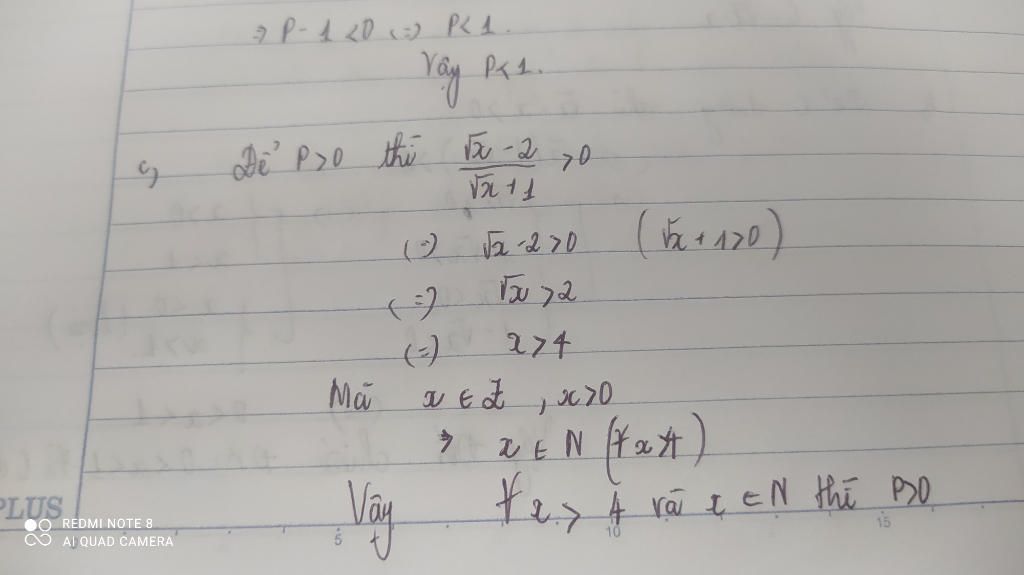 => P - 1 < 0 <=> P < 1.
Vậy P < 1.
c, Để P > 0 thì \frac{\sqrt{x} - 2}{\sqrt{x} + 1} > 0
(=) √x - 2 > 0 (√x + 1 > 0)
(=) √x > 2
(=) x > 4
Mà x ∈ Z , x > 0
=> x ∈ N (∀ x > 4)
Vậy ∀ x > 4 và x ∈ N thì P > 0
PLUS
5 10 15
REDMI NOTE 8
AI QUAD CAMERA